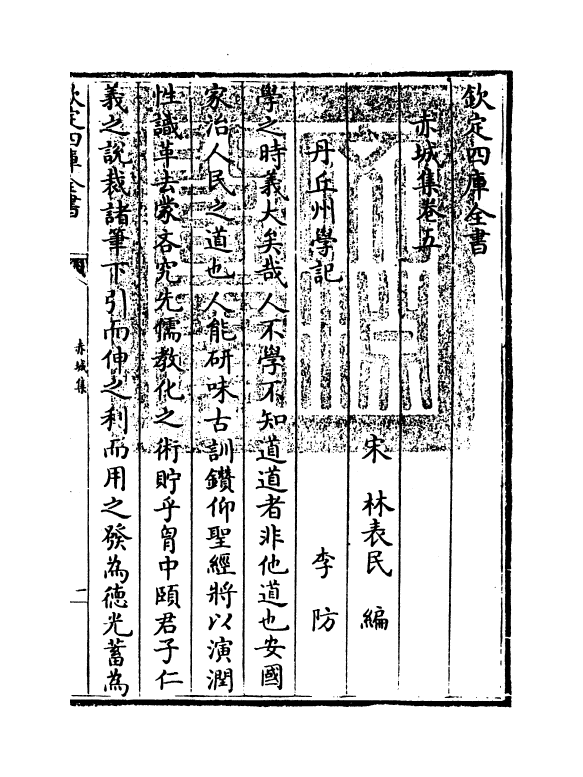 欽定四庫全書
赤城集卷五
宋 林表民 編
丹丘州學記
李防
學之時義大矣哉人不學不知道道者非他道也安國
家治人民之道也人能研味古訓鑽仰聖經將以演潤
性識革去蒙吝究先儒教化之術貯乎胷中頤君子仁
義之說裁諸筆下引而伸之利而用之發為徳光蓄為
欽定四庫全書
赤城集